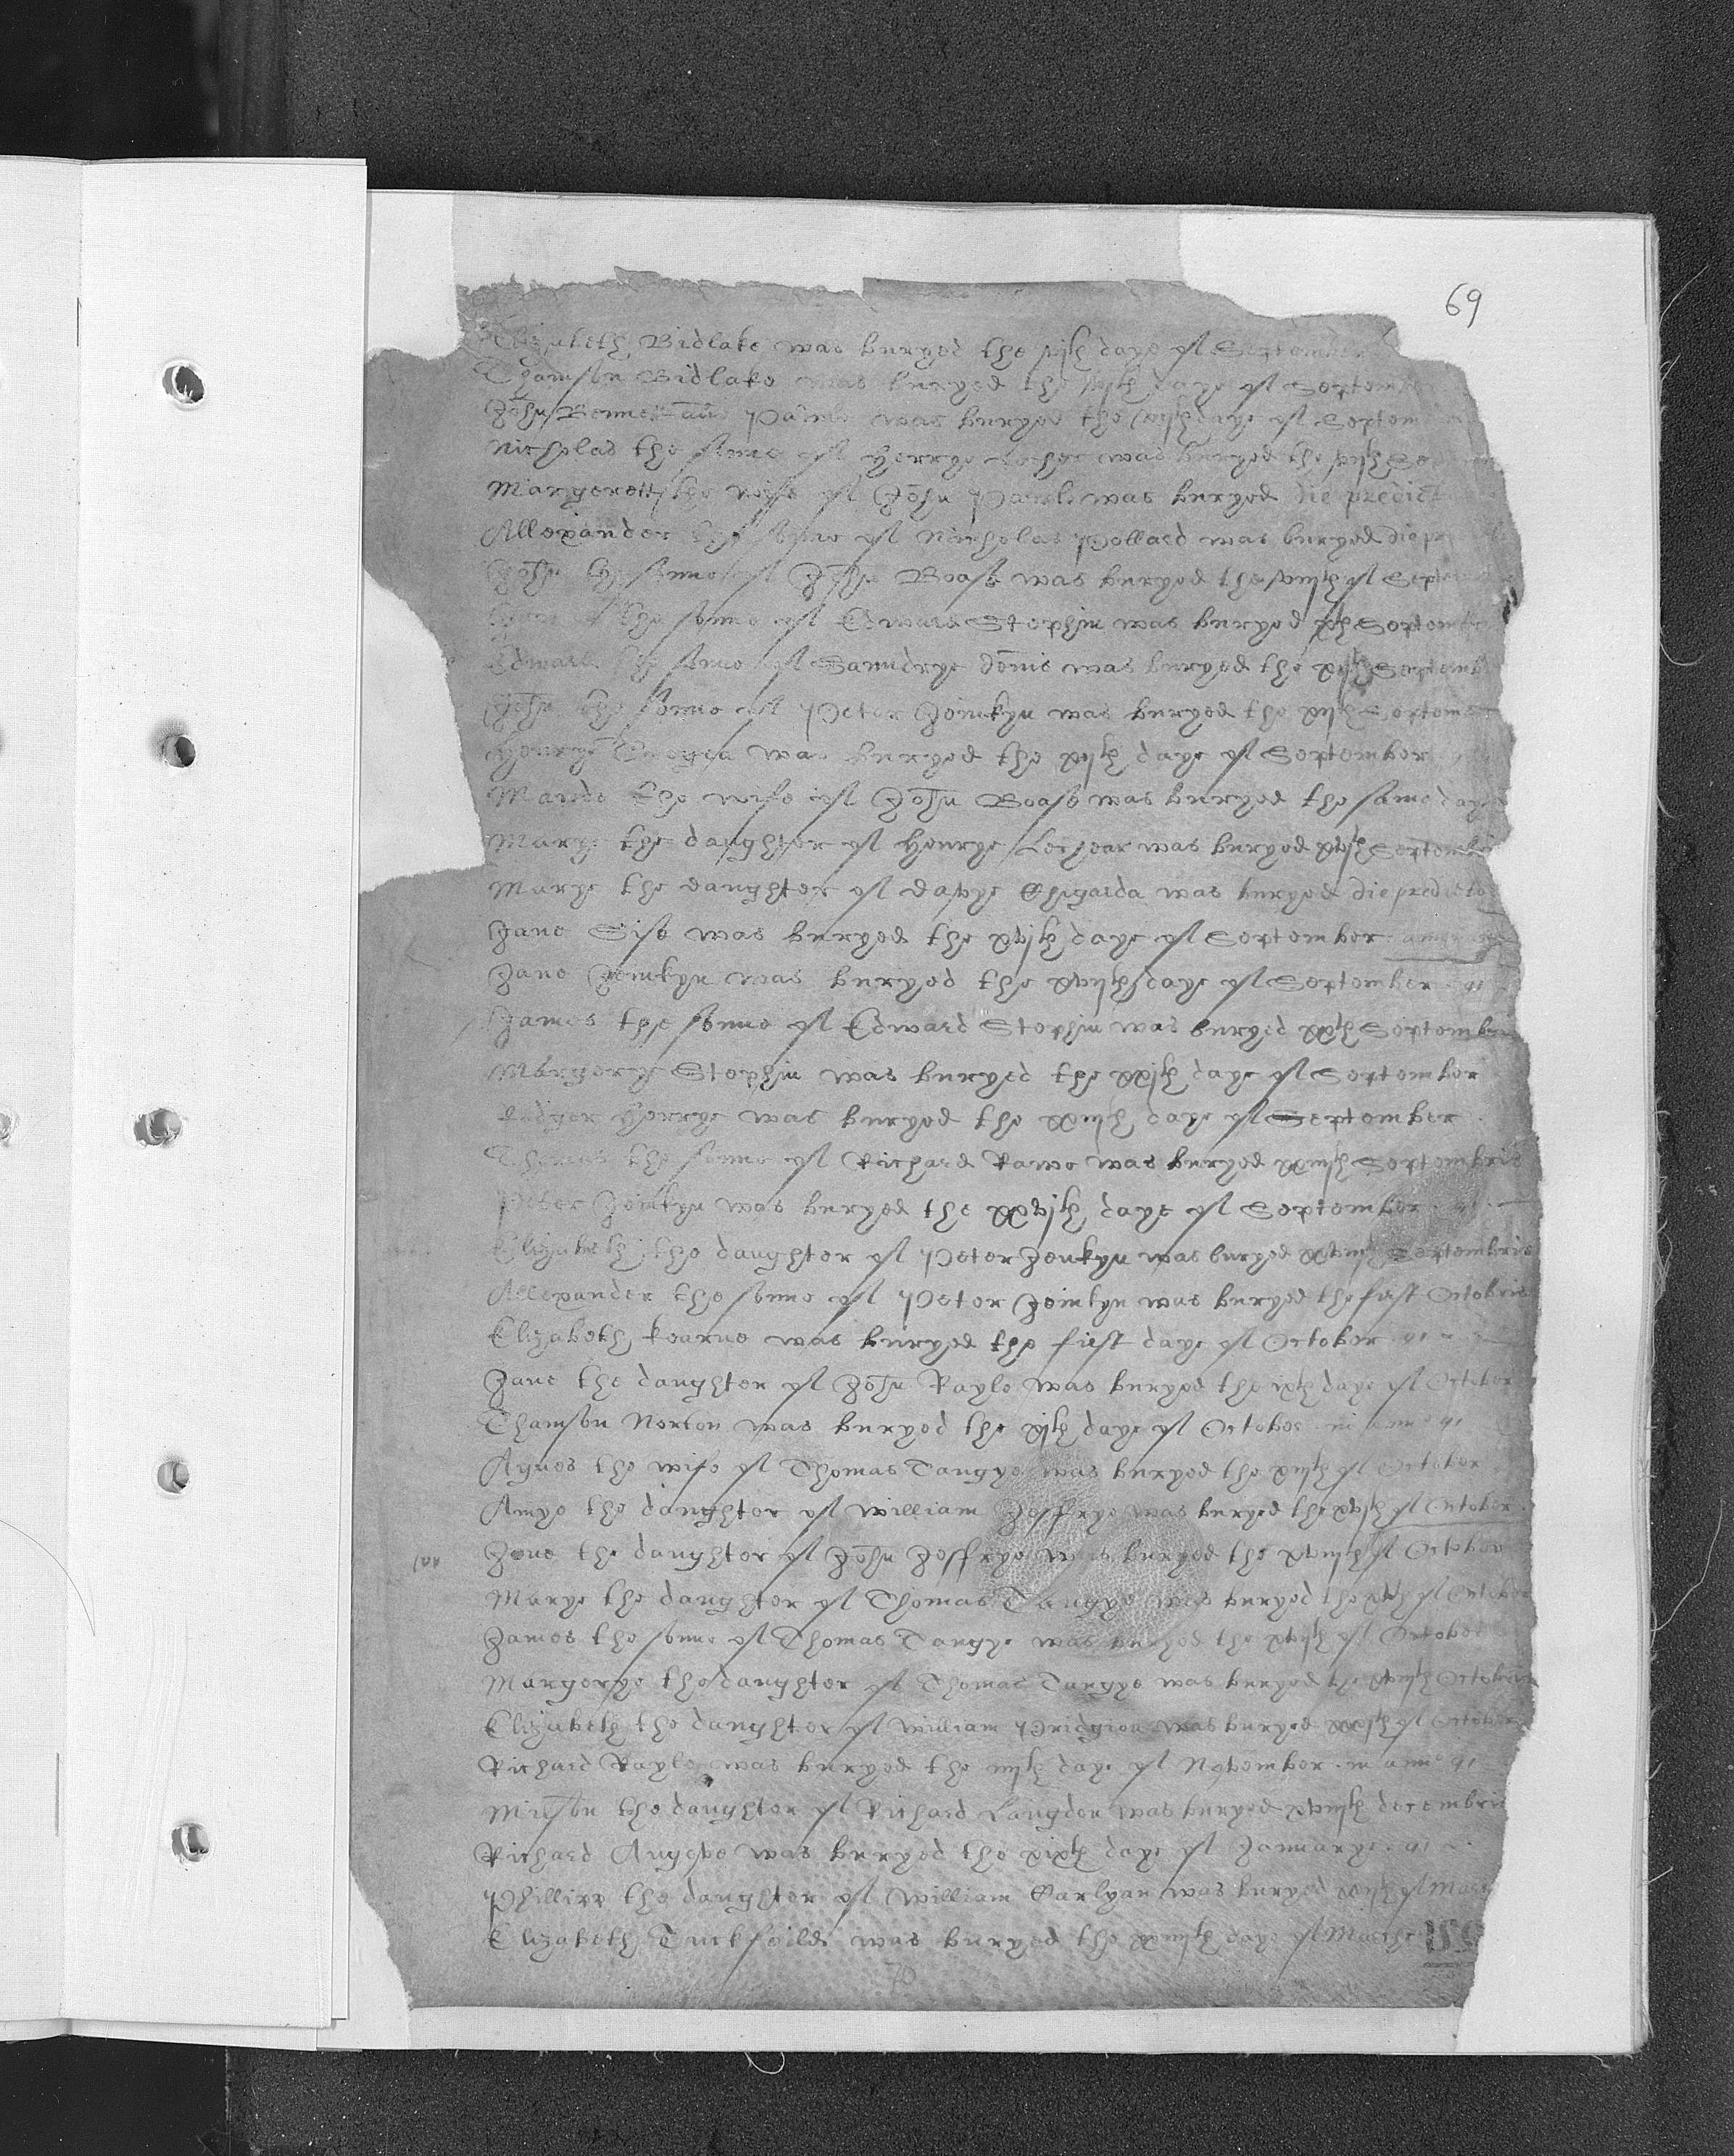 69
Elizabeth Bidlake was buryed the vjth daye of September
Thamson Bidlake was buryed the vjth daye of Septem
John Bennett als Pawle was buryed the daye of Septem
Nicholas the sonne of Herrye was buryed the vijth Sep
Margerett the wife of John Pawle was buryed die predict
Allexander the sonne of Nicholas Pollard was buryed die pr
John the sonne of John Boase was buryed the viijth of Septe
the sonne of Edward Stephin was buryed xth Septem
Edward the sonne of Saundrye Denis was buryed the xijth Septemb
John the sonne of Peter Jeinkyn was buryed the xijth Septem
Henrye was buryed the xijth daye of September
Maude the wife of John Boase was buryed the same daye
Marye the daughter of Henrye Lerhear was buryed xvjth Septemb
Marye the daughter of Davye was buryed die predicto
Jane Sise was buryed the xvijth daye of September
Jane Jeinkyn was buryed the xviijth daye of September 91
James the sonne of Edward Stephin was buryed xxth Septembris
Margerye Stephin was buryed the xxjth daye of September
Rodger Herrye was buryed the xxijth daye of September
Thomas the sonne of Richard Rawe was buryed xxiijth Septembris
Peter Jeinkyn was buryed the xxvijth daye of September 91
Elizabeth the daughter of Peter Jenkyn was buryed xxviijth Septembris
Allexander the sonne of Peter Jeinkyn was buryed the first Octobris
Elizabeth Kearne was buryed the first daye of October 91
Jane the daughter of John Rayle was buryed the ixth daye of October
Thamson Norton was buryed the xijth daye of October in anno 91
Agnes the wife of Thomas Tangye was buryed the xiijth of October
Amye the daughter of William Jeffrye was buryed the xvjth of October
Jane the daughter of John Jeffrye was buryed the xviijth of October
Marye the daughter of Thomas Tangye was buryed the xvth of October
James the sonne of Thomas Tangye was buryed the xvijth of October
Margerye the daughter of Thomas Tangye was buryed the xviijth Octobris
Elizabeth the daughter of William Pridgion was buryed xxvjth of October
Richard Rayle was buryed the iijth daye of November in anno 91
Milson the daughter of Richard Langdon was buryed xviijth decembris
Richard Angeve was buryed the xixth daye of Januarye 91
Phillipp the daughter of William Carlyan was buryed of Mar
Elizabeth Tuckfeilde was buryed the xxiiijth daye of Marche
70